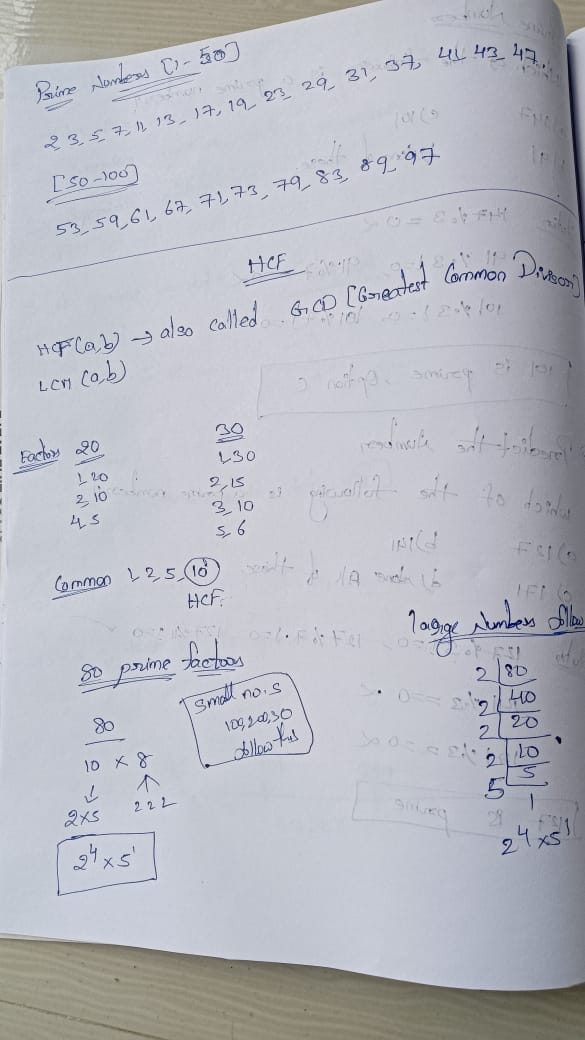 Prime Numbers [1-50]
2 3, 5, 7, 11, 13, 17, 19, 23, 29, 31, 37, 41, 43, 47.
[50-100]
53, 59, 61, 67, 71, 73, 79, 83, 89, 97
HCF
HCF (a,b) → also called GCD [Greatest Common Divisor]
LCM (a,b)
Factors 20 30
1, 20 1, 30
2, 10 2, 15
4, 5 3, 10
5, 6
Common 1, 2, 5, 10
HCF.
large Numbers follow
80 prime factors
80
10 × 8
↓ ↑
2×5 2 2 2
2⁴ × 5¹
Small no.s
100, 200, 30
follow this
2 | 80
2 | 40
2 | 20
2 | 10
5 | 5
1
2⁴ × 5¹